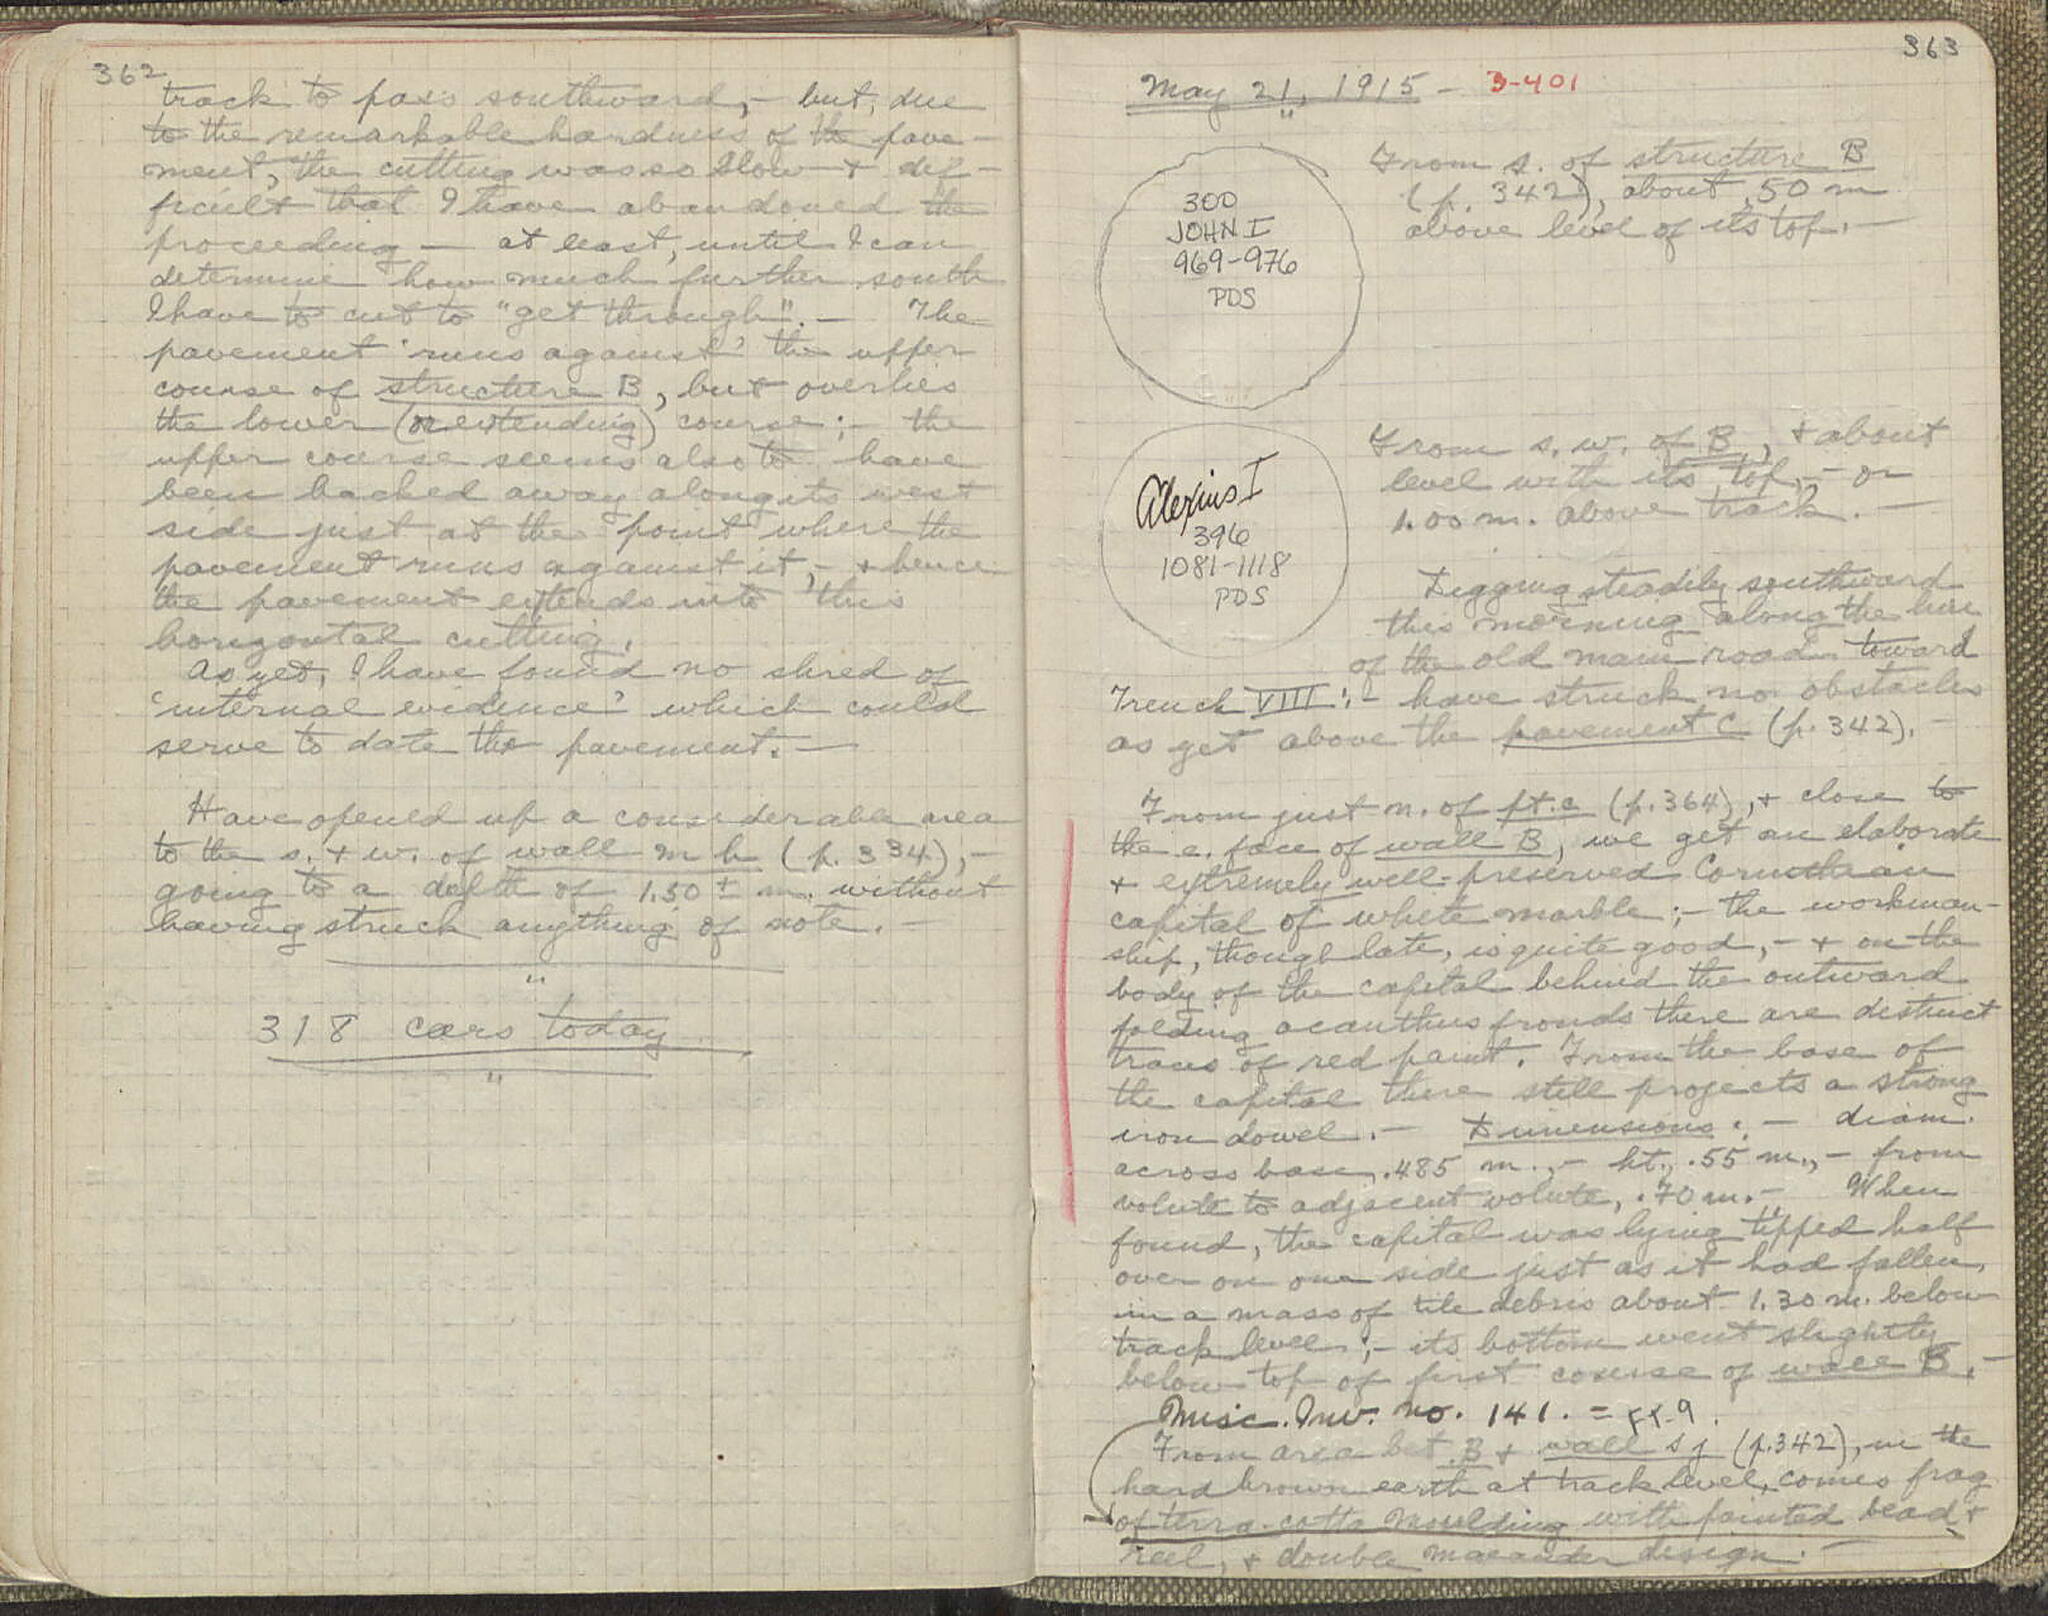 362
track to pass southward, – but, due
to the remarkable hardness of the pave-
ment, the cutting was so slow + dif-
ficult that I have abandoned the
proceeding — at least, until I can
determine how much further south
I have to cut to "get through". – The
pavement 'runs against' the upper
course of structure B, but overlies
the lower (or extending) course; – the
upper course seems also to have
been hacked away along its west
side just at the point where the
pavement runs against it, – + hence
the pavement extends into this
horizontal cutting.
As yet, I have found no shred of
'internal evidence' which could
serve to date the pavement. —
Have opened up a considerable area
to the s. + w. of wall m h (p. 334), –
going to a depth of 1.50 ± m. without
having struck anything of note. –
"
318 cars today
"
363
May 21, 1915 – 3-401
"
300
JOHN I
969-976
PDS
From s. of structure B
(p. 342), about .50 m
above level of its top. –
Alexius I
396
1081-1118
PDS
From s.w. of B, + about
level with its top, – or
1.00 m. above track. –
Digging steadily southward
this morning along the line
of the old main road toward
Trench VIII: – have struck no obstacles
as yet above the pavement C (p. 342). –
From just n. of pt. c (p. 364), + close to
the e. face of wall B, we get an elaborate
+ extremely well-preserved Corinthian
capital of white marble; – the workman-
ship, though late, is quite good, – + on the
body of the capital behind the outward
folding acanthus fronds there are distinct
traces of red paint. From the base of
the capital there still projects a strong
iron dowel. – Dimensions: – diam.
across base, .485 m., – ht., .55 m., – from
volute to adjacent volute, .70 m. – When
found, the capital was lying tipped half
over on one side just as it had fallen,
in a mass of tile debris about 1.30 m. below
track level; – its bottom went slightly
below top of first course of wall B. –
Misc. Inv. no. 141. = FT. 9.
From area bet. B + wall s j (p. 342), in the
hard brown earth at track level, comes frag
of terra-cotta moulding with painted bead +
reel, + double maeander design. –